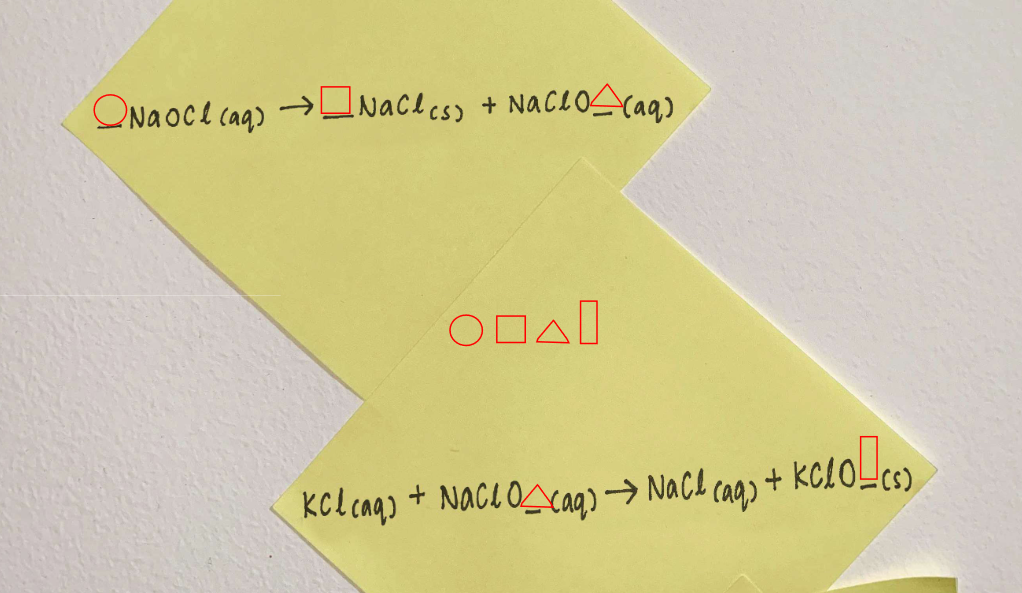 _NaOCl(aq) → _NaCl(s) + NaClO_(aq)
KCl(aq) + NaClO_(aq) → NaCl(aq) + KClO_(s)